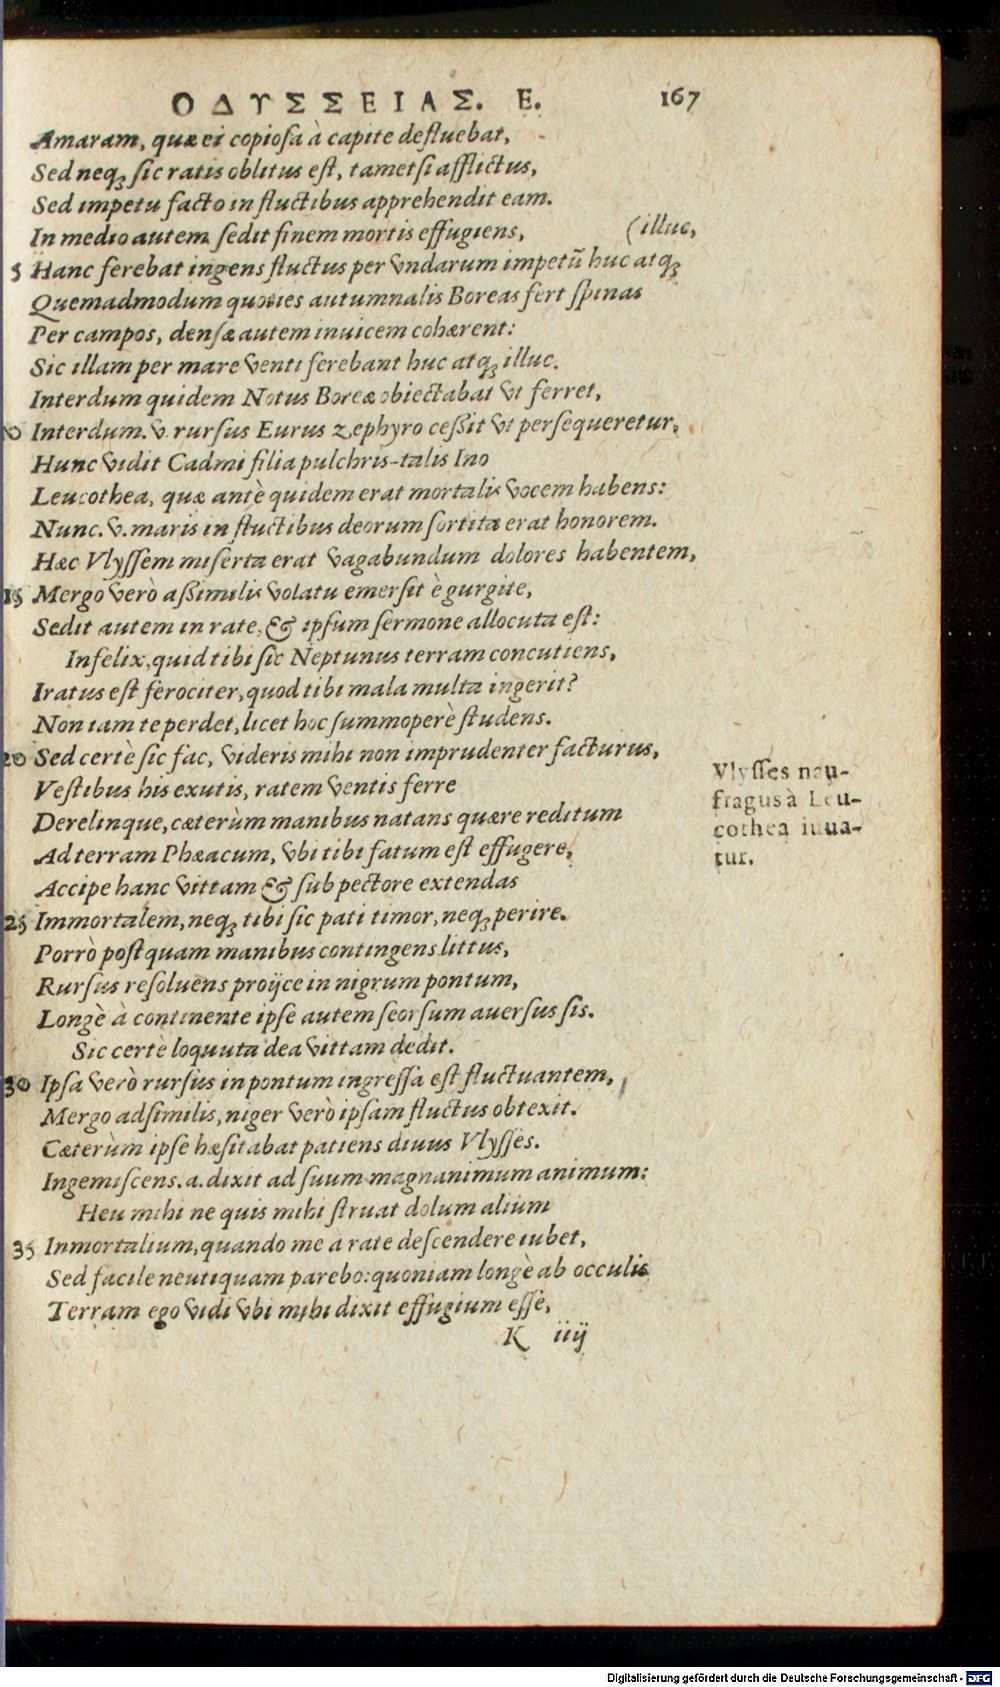 ΟΔΥΣΣΕΙΑΣ. E. 167
Amaram, quæ ei copiosa à capite defluebat,
Sed neq; sic ratis oblitus est, tametsi afflictus,
Sed impetu facto in fluctibus apprehendit eam.
In medio autem sedit finem mortis effugiens, (illuc,
5 Hanc ferebat ingens fluctus per vndarum impetũ huc atq;
Quemadmodum quoties autumnalis Boreas fert spinas
Per campos, densæ autem inuicem cohærent:
Sic illam per mare venti ferebant huc atq; illuc.
Interdum quidem Notus Boreæ obiectabat vt ferret,
10 Interdum. v. rursus Eurus zephyro cessit vt persequeretur,
Hunc vidit Cadmi filia pulchris-talis Ino
Leucothea, quæ antè quidem erat mortalis vocem habens:
Nunc. v. maris in fluctibus deorum sortita erat honorem.
Hæc Vlyssem miserta erat vagabundum dolores habentem,
15 Mergo verò assimilis volatu emersit è gurgite,
Sedit autem in rate, & ipsum sermone allocuta est:
Infelix, quid tibi sic Neptunus terram concutiens,
Iratus est ferociter, quod tibi mala multa ingerit?
Non iam te perdet, licet hoc summoperè studens.
20 Sed certè sic fac, videris mihi non imprudenter facturus,
Vestibus his exutis, ratem ventis ferre
Derelinque, cæterùm manibus natans quære reditum
Ad terram Phæacum, vbi tibi fatum est effugere,
Accipe hanc vittam & sub pectore extendas
25 Immortalem, neq; tibi sic pati timor, neq; perire.
Porrò postquam manibus contingens littus,
Rursus resoluens proijce in nigrum pontum,
Longè à continente ipse autem seorsum auersus sis.
Sic certè loquuta dea vittam dedit.
30 Ipsa verò rursus in pontum ingressa est fluctuantem,
Mergo adsimilis, niger verò ipsam fluctus obtexit.
Cæterùm ipse hæsitabat patiens diuus Vlysses.
Ingemiscens. a. dixit ad suum magnanimum animum:
Heu mihi ne quis mihi struat dolum alium
35 Inmortalium, quando me a rate descendere iubet,
Sed facile neutiquam parebo: quoniam longè ab occulis
Terram ego vidi vbi mihi dixit effugium esse,
K iiij
Vlysses nau-
fragus à Leu-
cothea iuua-
tur.
Digitalisierung gefördert durch die Deutsche Forschungsgemeinschaft - DFG